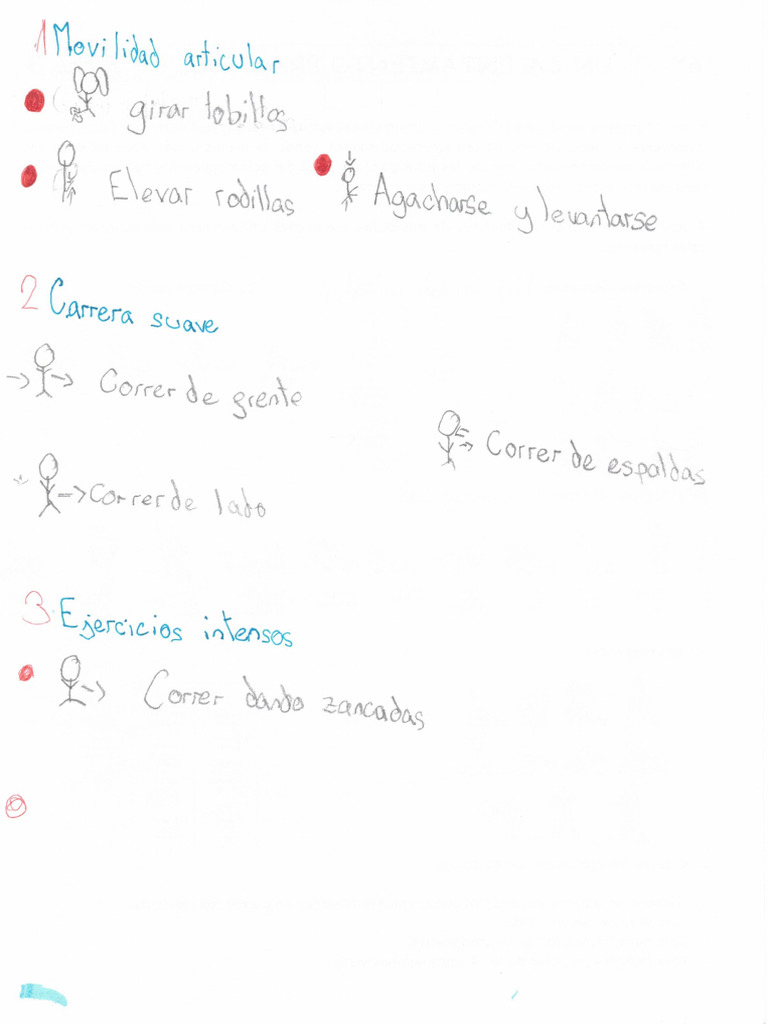 1 Movilidad articular
girar tobillos
Elevar rodillas
Agacharse y levantarse
2 Carrera suave
Correr de grente
Correr de espaldas
Correr de lado
3. Ejercicios intensos
Correr dando zancadas